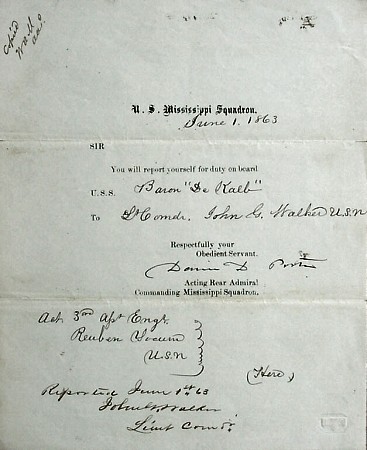 Copied
A
U. S. Mississippi Squadron.
June 1. 1863
SIR
You will report yourself for duty on board
U.S.S. Baron "De Kalb"
To Lt Comdr. John G. Walker U.S.N
Respectfully your
Obedient Servant.
David D. Porter
Acting Rear Admiral
Commanding Mississippi Squadron.
Act. 3rd Asst Engr.
Reuben
U.S.N
(Here)
Reported June 1st 63
John G. Walker
Lieut Comdr.